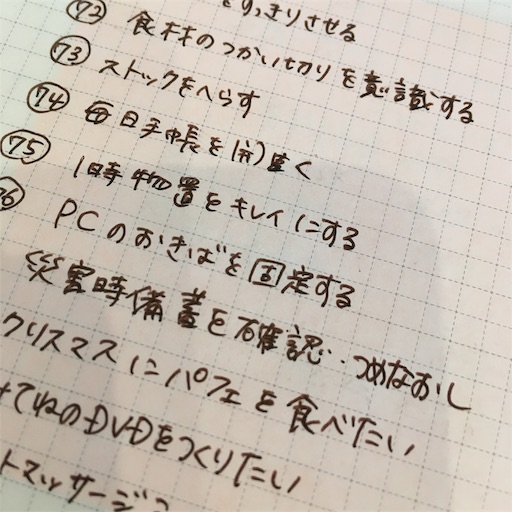 72 をすっきりさせる
73 食材のつかい切りを意識する
74 ストックをへらす
75 毎日手帳を開く
76 1時物置をキレイにする
PCのおきばを固定する
災害時備蓄を確認‥つめなおし
クリスマスにパフェを食べたい
てねのDVDをつくりたい
トマッサージ